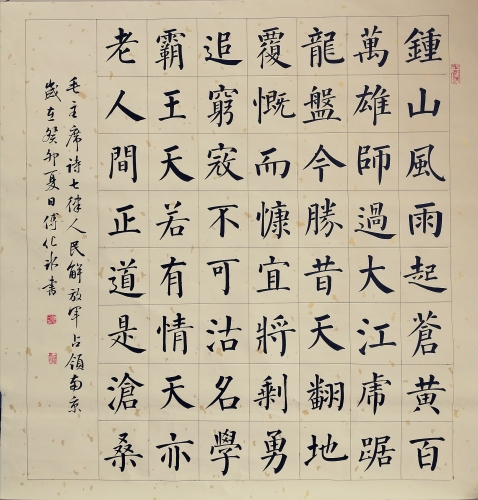 鍾山風雨起蒼黃百
萬雄師過大江虎踞
龍盤今勝昔天翻地
覆慨而慷宜將剩勇
追窮寇不可沽名學
霸王天若有情天亦
老人間正道是滄桑
毛主席詩七律人民解放軍占領南京
歲在癸卯夏日傅化冰書